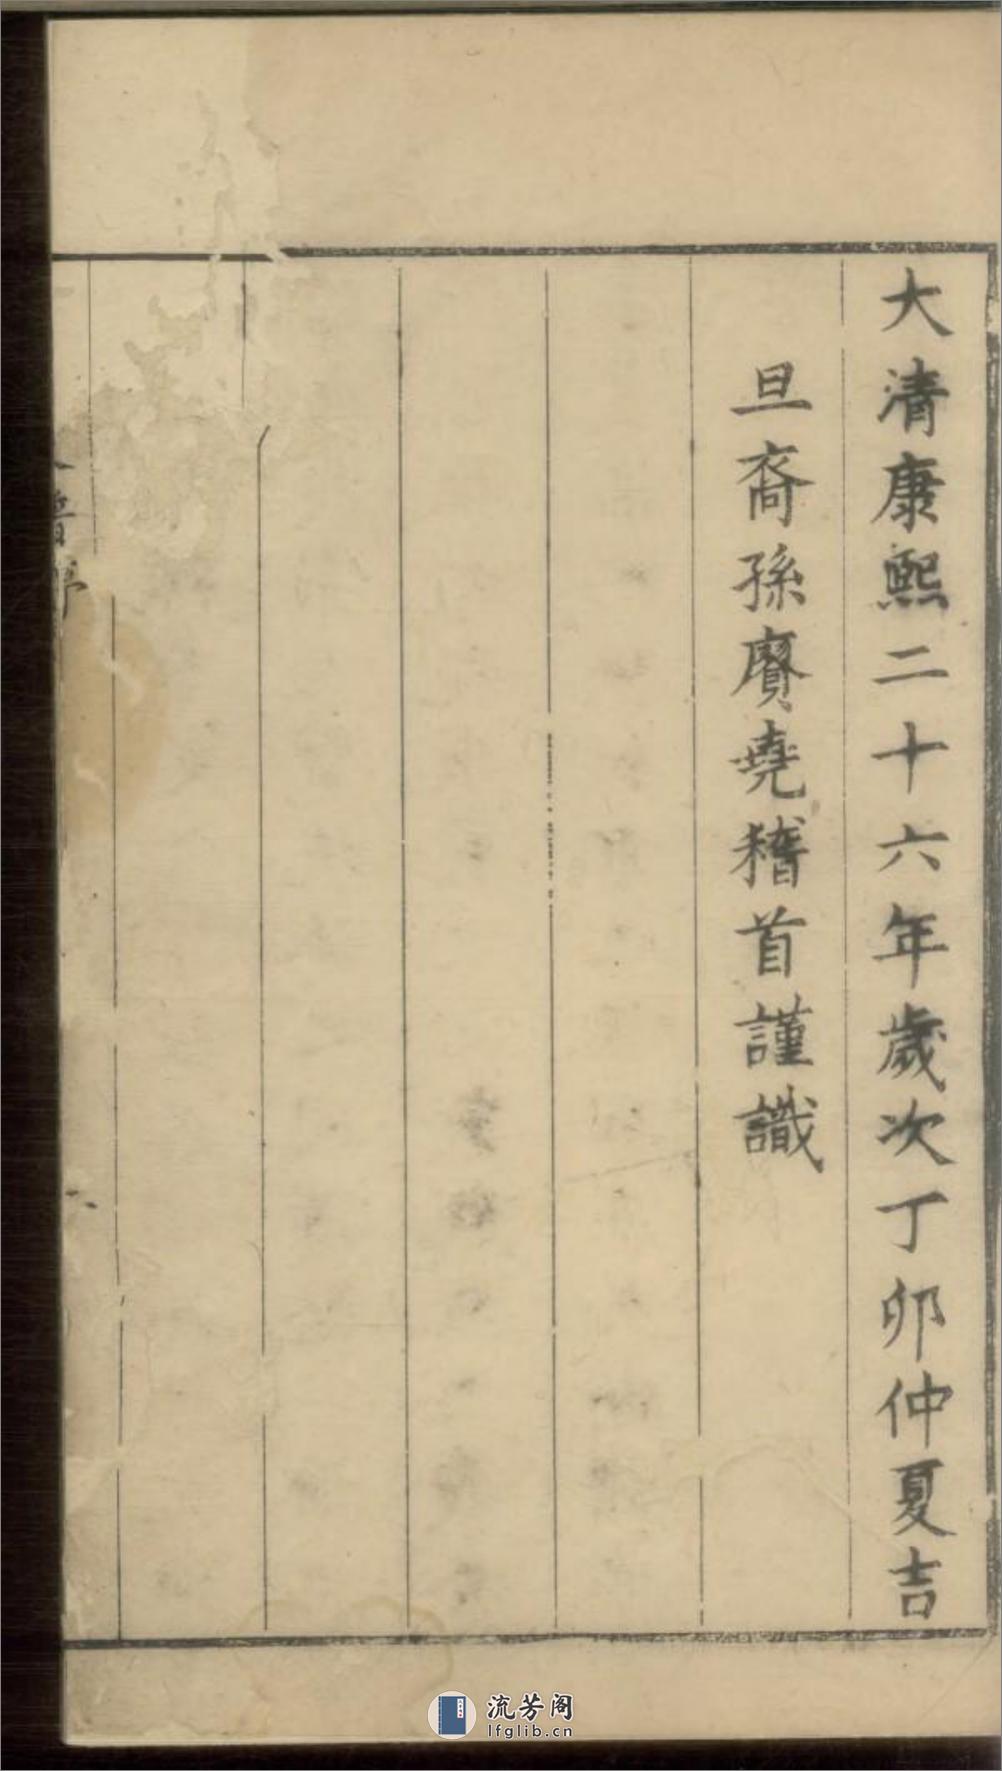 大清康熙二十六年歲次丁卯仲夏吉
旦裔孫賡堯稽首謹識
譜序
流芳阁
lfglib.cn